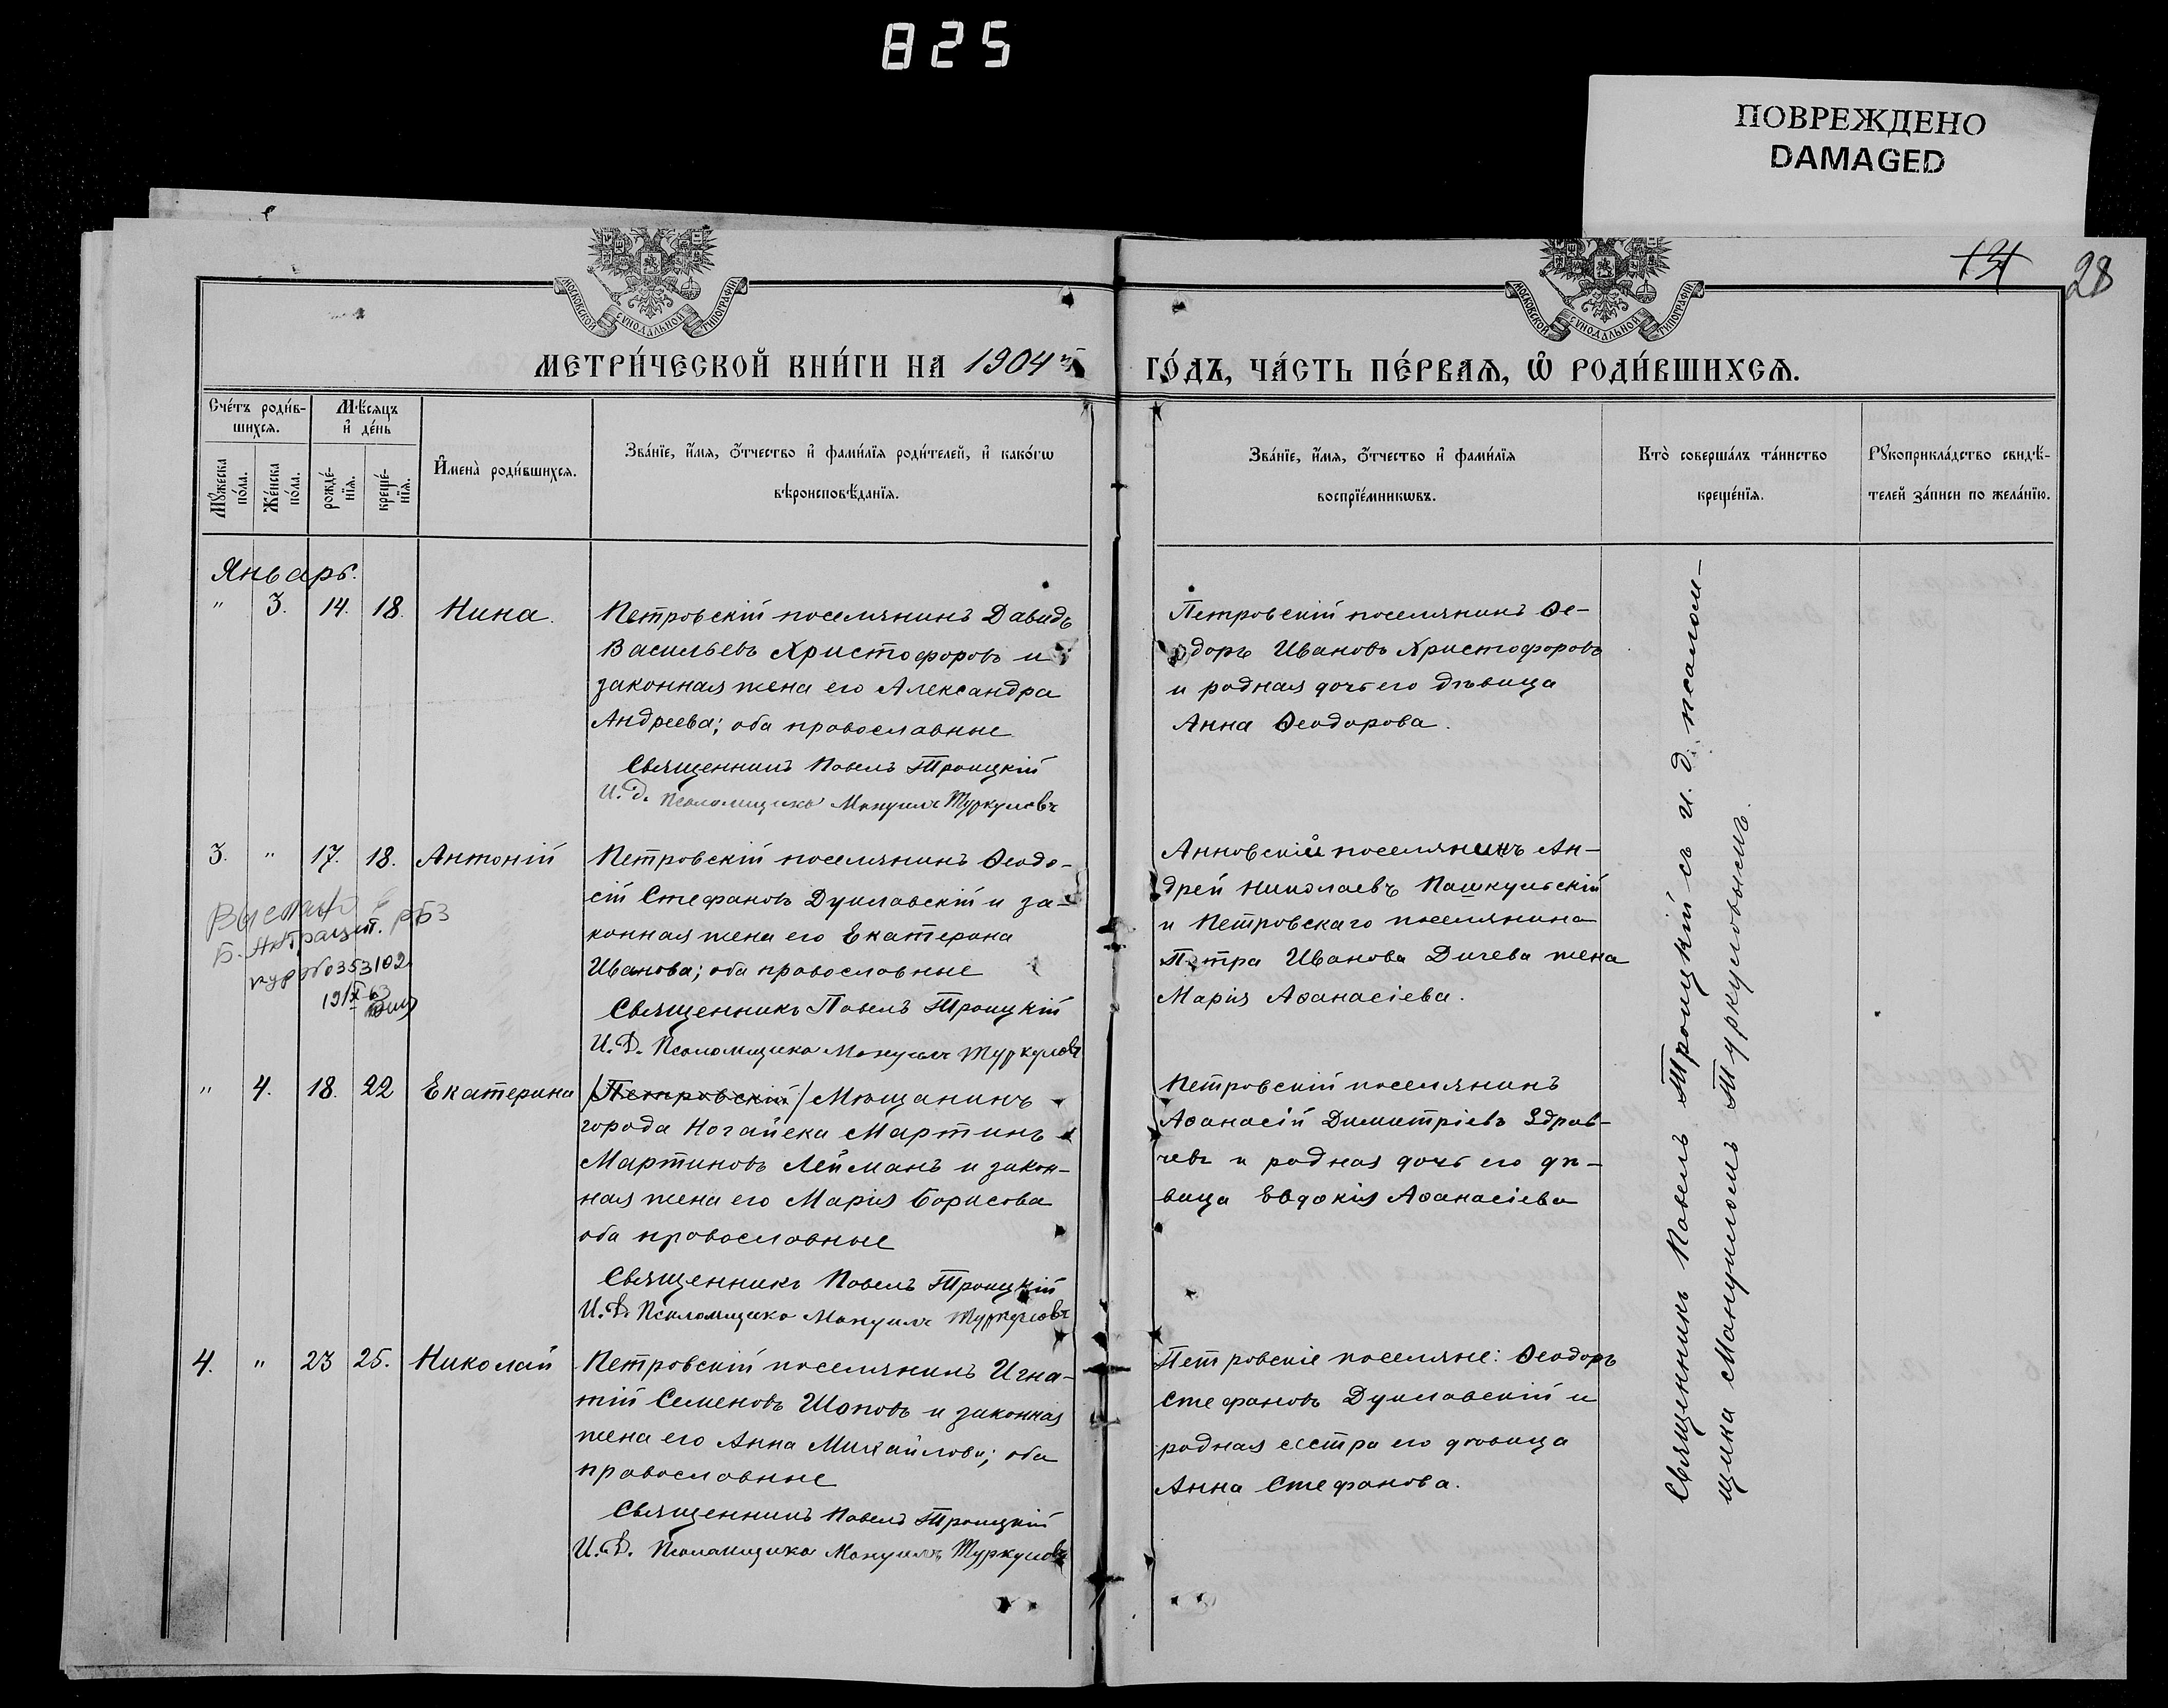 825
ПОВРЕЖДЕНО
DAMAGED
28
МОСКОВСКОЙ СѴНОДАЛЬНОЙ ТИПОГРАФІИ
МОСКОВСКОЙ СѴНОДАЛЬНОЙ ТИПОГРАФІИ
МЕТРИ́ЧЕСКОЙ КНИ́ГИ НА 1904 й ГО́ДЪ, ЧА́СТЬ ПЕ́РВАѦ, Ѽ РОДИ́ВШИХСѦ.
Сче́тъ роди́в-
шихсѧ.
Мѣ́сяцъ
и҆ де́нь
Мꙋ́жеска
по́ла.
Же́нска
по́ла.
рожде́-
нїѧ.
креще́-
нїѧ.
И҆мена̀ роди́вшихсѧ.
Зва́нїе, и҆́мѧ, ѻ҆́тчество и҆ фами́лїѧ роди́телей, и҆ како́гѡ
вѣроисповѣ́данїѧ.
Зва́нїе, и҆́мѧ, ѻ҆́тчество и҆ фами́лїѧ
воспрїе́мникѡвъ.
Кто̀ соверша́лъ та́инство
креще́нїѧ.
Рꙋкоприкла́дство свидѣ́-
телей за́писи по жела́нїю.
Январь.
" 3. 14. 18. Нина.
Петровскій поселянинъ Давидъ
Васильевъ Христофоровъ и
законная жена его Александра
Андреева; оба православные
Священникъ Павелъ Троицкій
И. д. Псаломщика Мануилъ Туркуловъ
Петровскій поселянинъ Ѳе-
одоръ Ивановъ Христофоровъ
и родная дочь его дѣвица
Анна Ѳеодорова.
3. " 17. 18. Антоній
Петровскій поселянинъ Ѳеодо-
сій Стефановъ Дукловскій и за-
конная жена его Екатерина
Иванова; оба православные
Священникъ Павелъ Троицкій
И. Д. Псаломщика Мануилъ Туркуловъ
Б. Антрацит.
353102
19/X-63
Анновскій поселянинъ Ан-
дрей Николаевъ Пашкульскій
и Петровскаго поселянина
Петра Иванова Дичева жена
Марія Аѳанасіева.
" 4. 18. 22 Екатерина
/Петровскій/ Мѣщанинъ
города Ногайска Мартинъ
Мартиновъ Лейманъ и закон-
ная жена его Марія Борисова
оба православные
Священникъ Павелъ Троицкій
И. Д. Псаломщика Мануилъ Туркуловъ
Петровскій поселянинъ
Аѳанасій Димитріевъ Здрав-
чевъ и родная дочь его дѣ-
вица Евдокія Аѳанасіева
4. " 23 25. Николай
Петровскій поселянинъ Игна-
тій Семеновъ Шоповъ и законная
жена его Анна Михайлова; оба
православные
Священникъ Павелъ Троицкій
И. Д. Псаломщика Мануилъ Туркуловъ
Петровскіе поселяне: Ѳеодоръ
Стефановъ Дукловскій и
родная сестра его дѣвица
Анна Стефанова.
Священникъ Павелъ Троицкій съ и. д. псалом-
щика Мануиломъ Туркуловымъ.